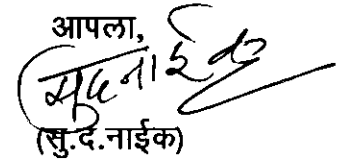 आपला,
(सु.द.नाईक)